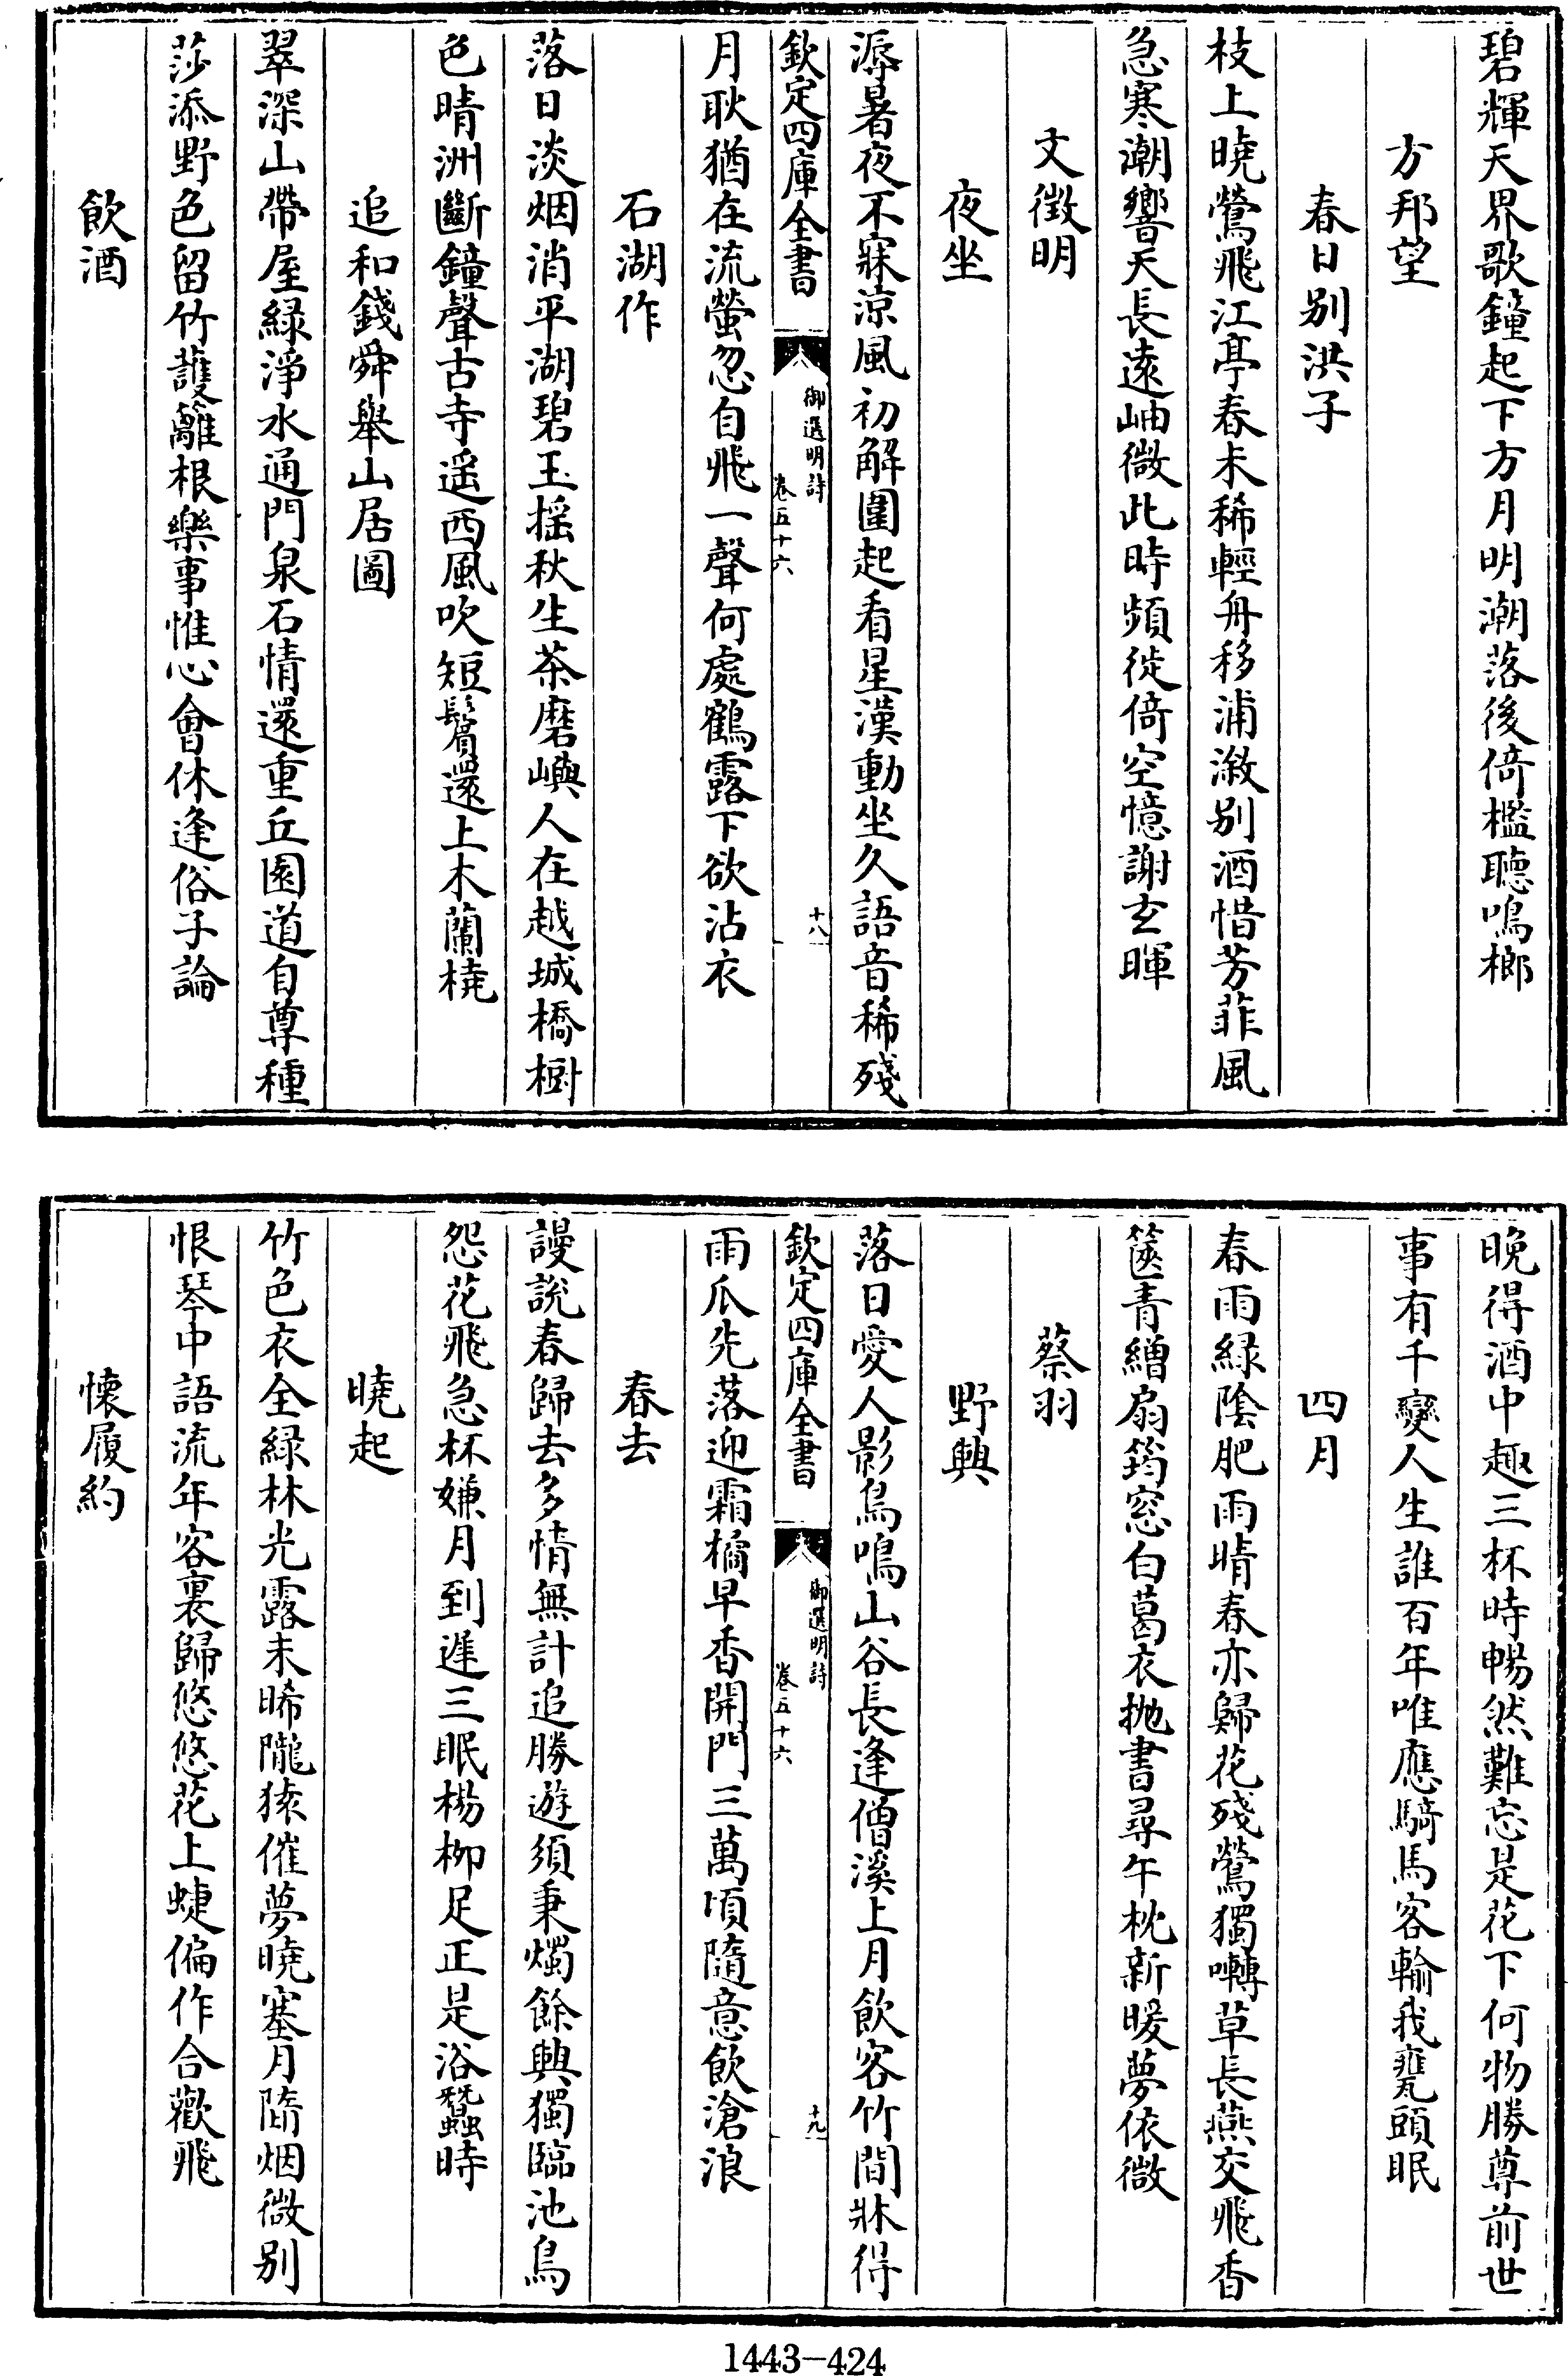 碧輝天界歌鐘起下方月明潮落後倚檻聽鳴榔
方邦望
春日别洪子
枝上曉鶯飛江亭春未稀輕舟移浦溆别酒惜芳菲風
急寒潮響天長遠岫微此時頻徙倚空憶謝玄暉
文徵明
夜坐
溽暑夜不寐涼風初解圍起看星漢動坐久語音稀殘
欽定四庫全書
御選明詩
卷五十六
十八
月耿猶在流螢忽自飛一聲何處鶴露下欲沾衣
石湖作
落日淡烟消平湖碧玉揺秋生茶磨嶼人在越城橋樹
色晴洲斷鐘聲古寺遥西風吹短鬢還上木蘭橈
追和錢舜舉山居圖
翠深山帶屋緑淨水通門泉石情還重丘園道自尊種
莎添野色留竹護籬根樂事惟心會休逢俗子論
飲酒
晚得酒中趣三杯時暢然難忘是花下何物勝尊前世
事有千變人生誰百年唯應騎馬客輸我甕頭眠
四月
春雨緑陰肥雨晴春亦歸花殘鶯獨囀草長燕交飛香
篋青繒扇筠窓白葛衣抛書尋午枕新暖夢依微
蔡羽
野興
落日愛人影鳥鳴山谷長逢僧溪上月飲客竹間牀得
欽定四庫全書
御選明詩
卷五十六
十九
雨瓜先落迎霜橘早香開門三萬頃隨意飲滄浪
春去
謾説春歸去多情無計追勝遊須秉燭餘興獨臨池鳥
怨花飛急杯嫌月到遲三眠楊柳足正是浴蠶時
曉起
竹色衣全緑林光露未晞隴猿催夢曉塞月隋烟微别
恨琴中語流年客裏歸悠悠花上蜨偏作合歡飛
懷履約
1443-424